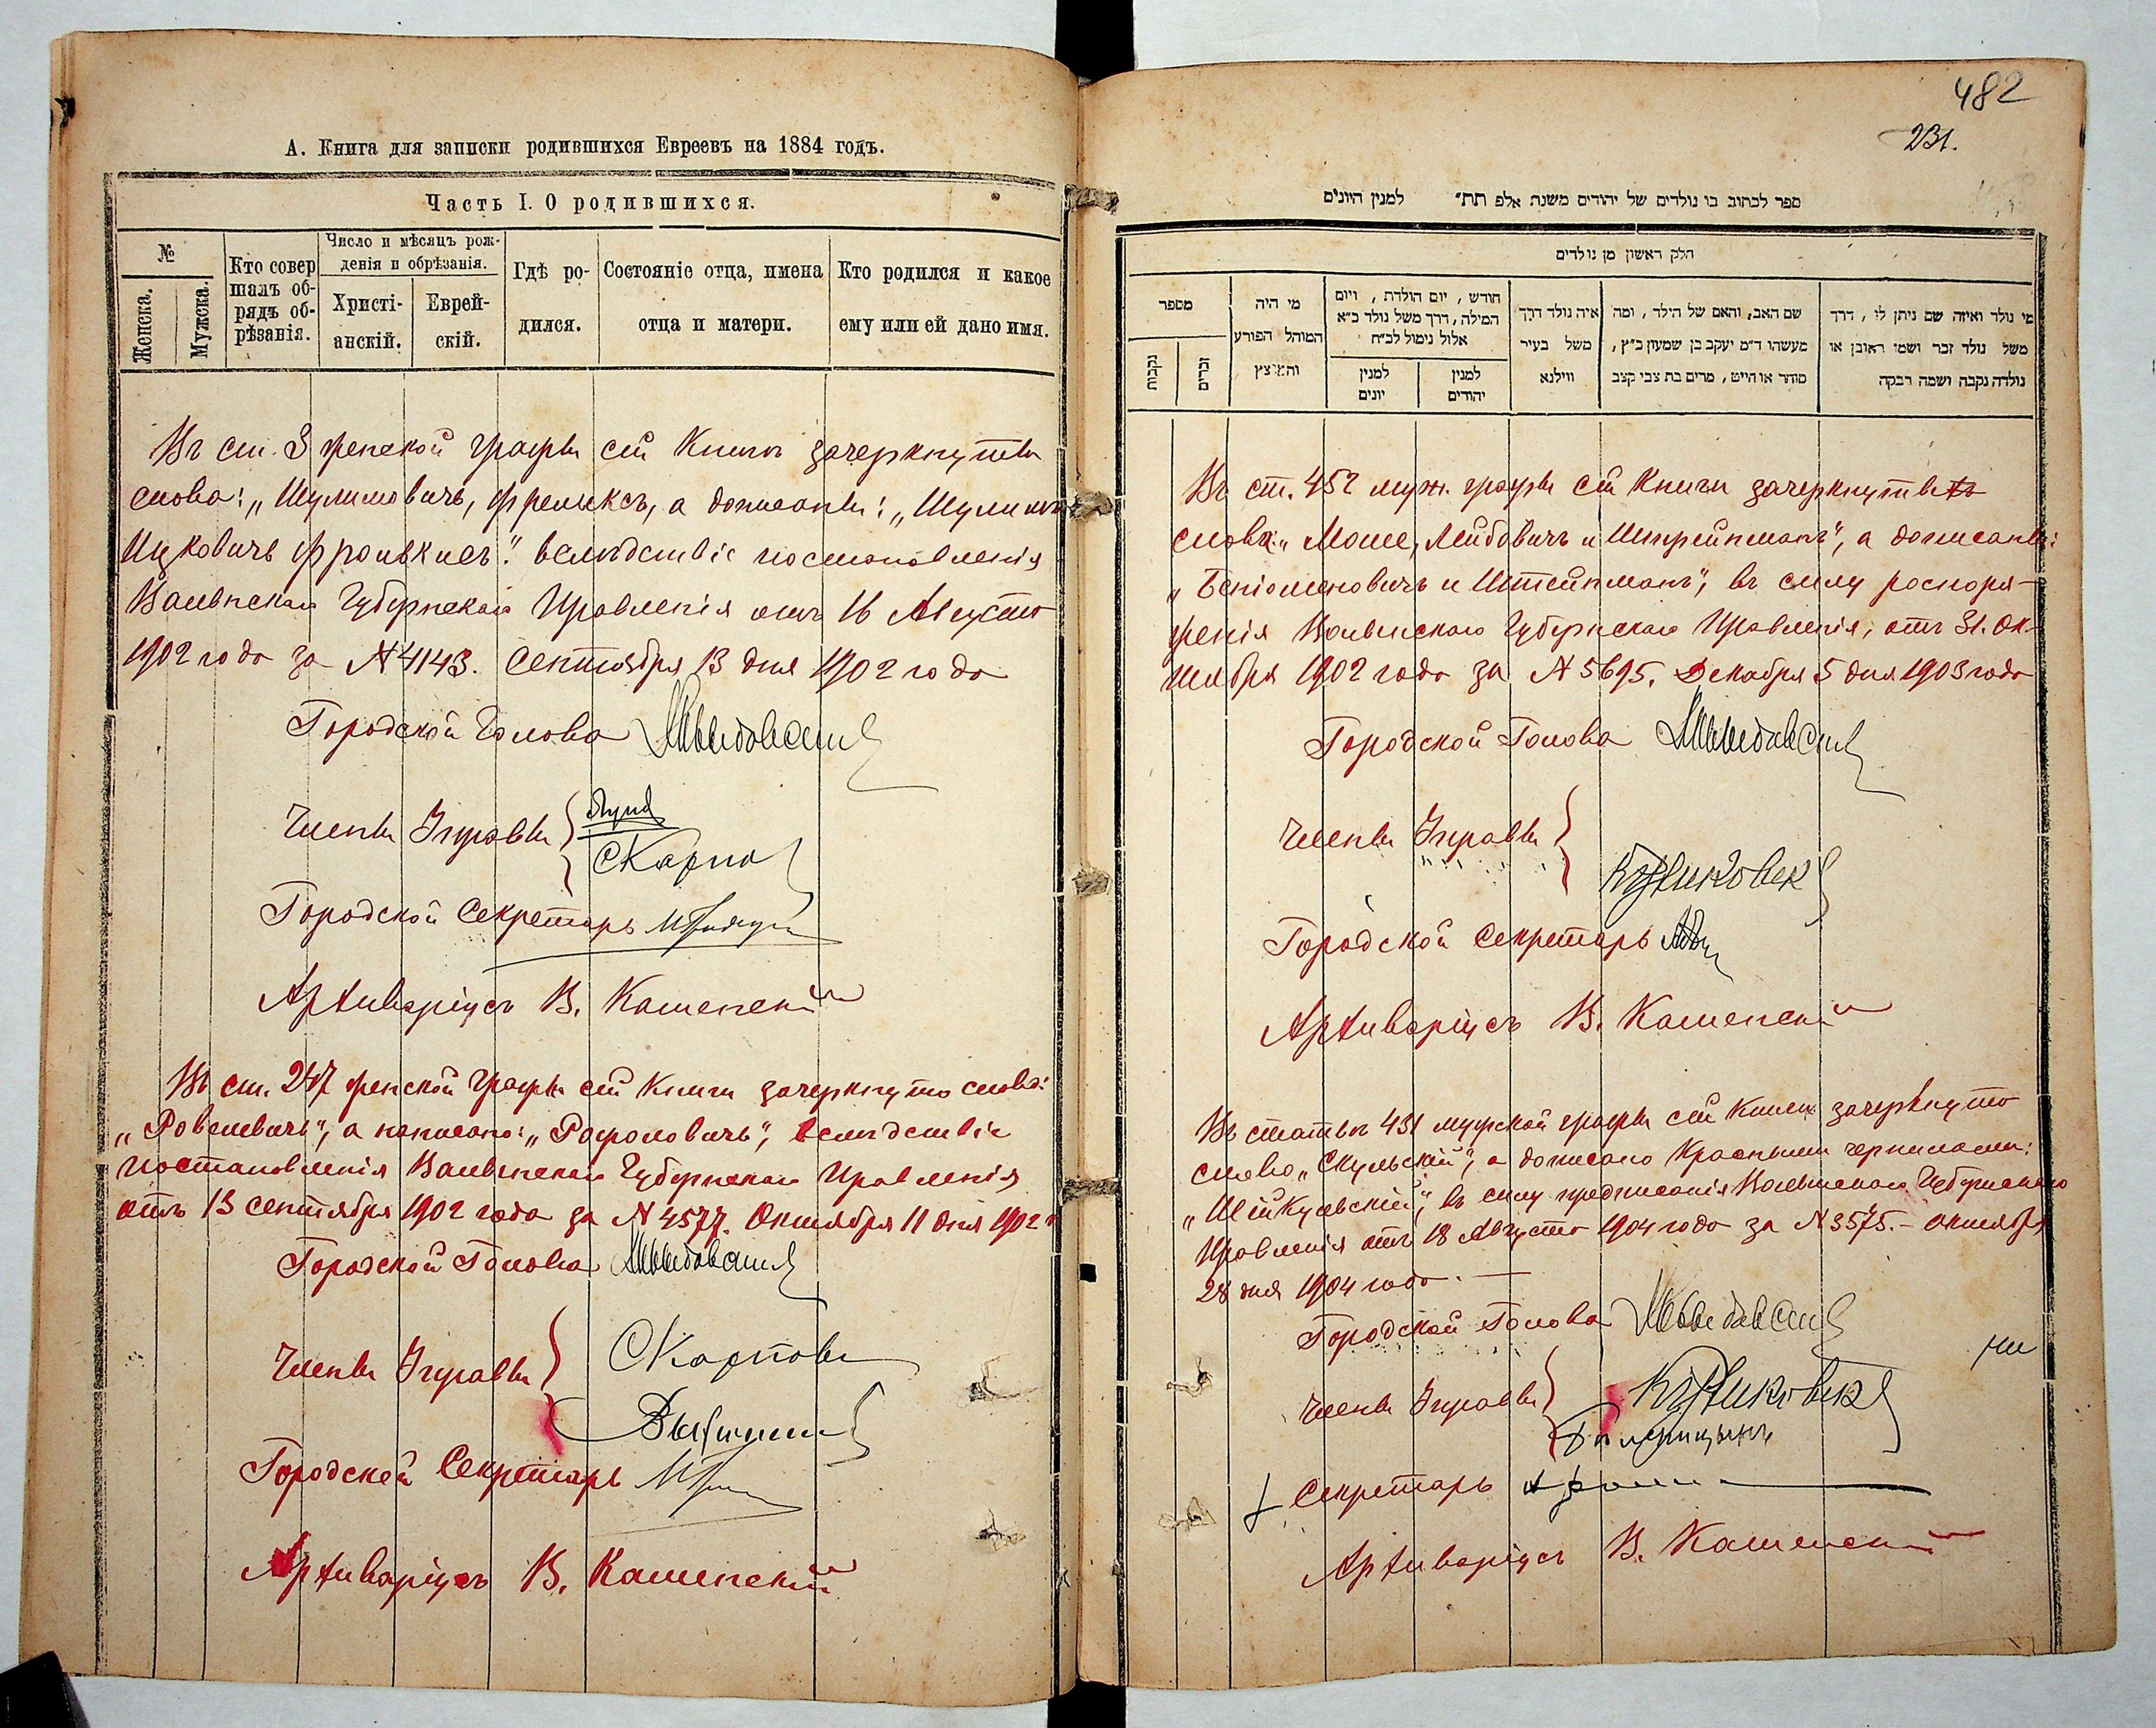 А. Книга для записки родившихся Евреевъ на 1884 годъ.
Часть I. О родившихся.
№
Женска.
Мужска.
Кто совер
шалъ об-
рядъ об-
рѣзанія.
Число и мѣсяцъ рож-
денія и обрѣзанія.
Христі-
анскій.
Еврей-
скій.
Гдѣ ро-
дился.
Состояніе отца, имена
отца и матери.
Кто родился и какое
ему или ей дано имя.
Въ ст. 3 женской графы сей Книги зачеркнуты
слова: „Шулимовичъ, Френкель, а дописаны: „Шулимъ
Ицковичъ Фроивкисъ". вслѣдствіе постановленія
Волынскаго Губернскаго Правленія отъ 16 Августа
1902 года за № 4143. Сентября 13 дня 1902 года
Городской Голова
Члены Управы
СКарпо
Городской Секретарь
Архиваріусъ В. Каменскій
Въ ст. 247 женской графы сей Книги зачеркнуто слово:
„Ровелевичъ", а написано: „Рафоловичъ", вслѣдствіе
постановленія Волынскаго Губернскаго Правленія
отъ 13 Сентября 1902 года за № 4577. Октября 11 дня 1902 г
Городской Голова
Члены Управы
СКарповъ
Городской Секретарь
Архиваріусъ В. Каменскій
482
231.
ספר לכתוב בו נולדים של יהודים משנת אלפ תת״ למנין היונים
חלק ראשון מן נולדים
מספר
נקבות
זכרים
מי היה
המוהל הפורע
והמוצץ
חודש, יום הולדת, ויום
המילה, דרך משל נולד כ״א
אלול נימול לכ״ח
למנין
יונים
למנין
יהודים
איה נולד דרך
משל בעיר
ווילנא
שם האב, והאם של הילד, ומה
מעשהו ד״מ יעקב בן שמעון כ״ץ,
סוחר או חייט, מרים בת צבי קצב
מי נולד ואיזה שם ניתן לו, דרך
משל נולד זכר ושמו ראובן או
נולדה נקבה ושמה רבקה
Въ ст. 452 муж. графы сей Книги зачеркнуты
слова: „Моше, Лейбовичъ и Штрейнманъ", а дописаны:
„Беніоменовичъ и Штейнманъ", въ силу распоря-
женія Волынскаго Губернскаго Правленія, отъ 31. Ок-
тября 1902 года за № 5695. Декабря 5 дня 1903 года
Городской Голова
Члены Управы
Городской Секретарь
Архиваріусъ В. Каменскій
Въ статьѣ 431 мужской графы сей Книги зачеркнуто
слово „Скульскій", а дописано Красными чернилами:
„Шійкусвскій", въ силу предписанія Волынскаго Губернскаго
Правленія отъ 18 Августа 1904 года за № 3575. – Октября
28 дня 1904 года. —
Городской Голова
Члены Управы
Секретарь
Архиваріусъ В. Каменскій